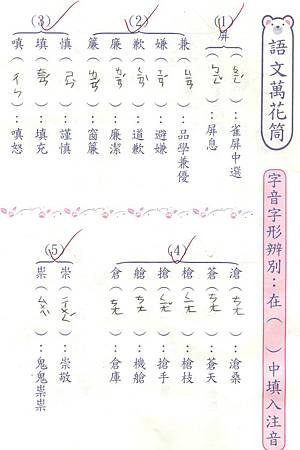 語文萬花筒
字音字形辨別：在（ ）中填入注音
(1)
屏
（ ）：雀屏中選
（ ）：屏息
(2)
兼（ ）：品學兼優
嫌（ ）：避嫌
歉（ ）：道歉
廉（ ）：廉潔
簾（ ）：窗簾
(3)
慎（ ）：謹慎
填（ ）：填充
嗔（ㄔㄣ）：嗔怒
(4)
滄（ㄘㄤ）：滄桑
蒼（ㄘㄤ）：蒼天
槍（ ）：槍枝
搶（ ）：搶手
艙（ㄘㄤ）：機艙
倉（ㄘㄤ）：倉庫
(5)
崇（ ）：崇敬
祟（ ）：鬼鬼祟祟